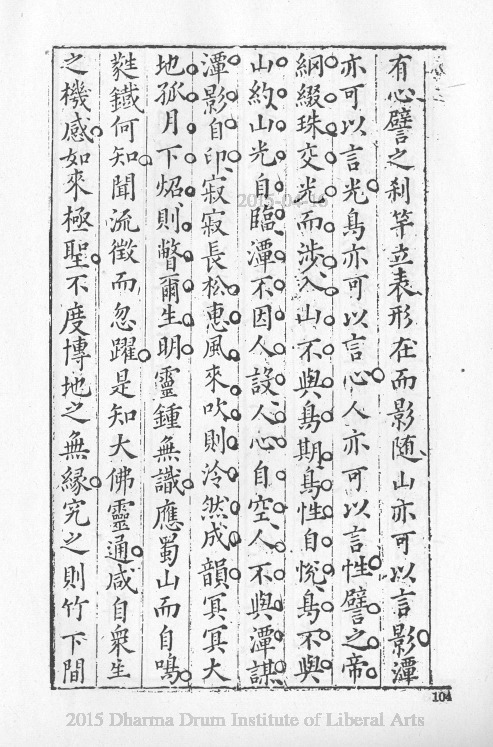 有心譬之刹竿立表形在而影随山亦可以言影潭
亦可以言光鳥亦可以言心人亦可以言性譬之帝
網綴珠交光而涉入山不與鳥期鳥性自恱鳥不與
山約山光自臨潭不因人設人心自空人不與潭謀
潭影自印寂寂長松惠風來吹則泠然成韻冥冥大
地孤月下炤則瞥爾生明靈鍾無識應蜀山而自鳴
蕤鐵何知聞流徵而忽躍是知大佛靈通咸自衆生
之機感如來極聖不度博地之無縁究之則竹下間
104
2015-04-16
2015 Dharma Drum Institute of Liberal Arts